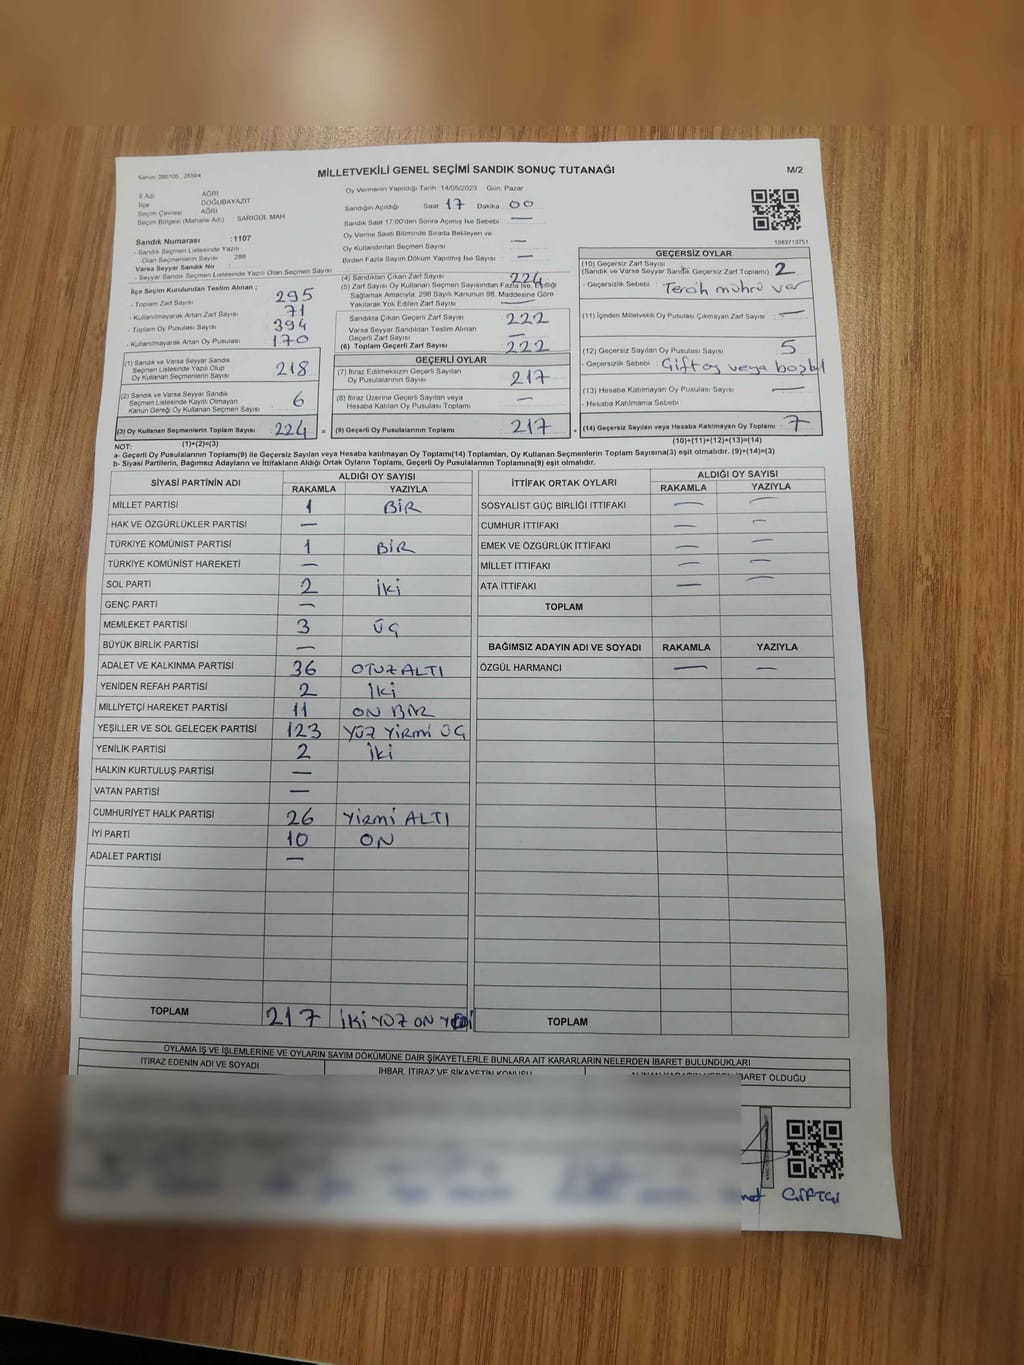 MİLLETVEKİLİ GENEL SEÇİMİ SANDIK SONUÇ TUTANAĞI
M/2
İl Adı AĞRI
İlçe DOĞUBAYAZIT
Seçim Çevresi AĞRI
Seçim Bölgesi (Mahalle Adı) : SARIGÜL MAH
Sandık Numarası :1107
- Sandık Seçmen Listesinde Yazılı
Olan Seçmenlerin Sayısı
Varsa Seyyar Sandık No :
- Seyyar Sandık Seçmen Listesinde Yazılı Olan Seçmen Sayısı
Oy Vermenin Yapıldığı Tarih : 14/05/2023 Gün: Pazar
Sandığın Açıldığı Saat : 17 Dakika : 00
Sandık Saat 17:00'den Sonra Açılmış İse Sebebi : —
Oy Verme Saati Bitiminde Sırada Bekleyen ve
Oy Kullandırılan Seçmen Sayısı —
Birden Fazla Sayım Döküm Yapılmış İse Sayısı : —
1083713751
İlçe Seçim Kurulundan Teslim Alınan ;
- Toplam Zarf Sayısı : 295
- Kullanılmayarak Artan Zarf Sayısı : 71
- Toplam Oy Pusulası Sayısı : 394
- Kullanılmayarak Artan Oy Pusulası : 170
(1) Sandık ve Varsa Seyyar Sandık
Seçmen Listesinde Yazılı Olup
Oy Kullanan Seçmenlerin Sayısı 218
(2) Sandık ve Varsa Seyyar Sandık
Seçmen Listesinde Kayıtlı Olmayan
Kanun Gereği Oy Kullanan Seçmen Sayısı 6
(3) Oy Kullanan Seçmenlerin Toplam Sayısı 224 =
(1)+(2)=(3)
(4) Sandıktan Çıkan Zarf Sayısı : 224
(5) Zarf Sayısı Oy Kullanan Seçmen Sayısından Fazla İse, Eşitliği
Sağlamak Amacıyla; 298 Sayılı Kanunun 98. Maddesine Göre
Yakılarak Yok Edilen Zarf Sayısı : —
Sandıkta Çıkan Geçerli Zarf Sayısı : 222
Varsa Seyyar Sandıktan Teslim Alınan
Geçerli Zarf Sayısı : —
(6) Toplam Geçerli Zarf Sayısı : 222
GEÇERLİ OYLAR
(7) İtiraz Edilmeksizin Geçerli Sayılan
Oy Pusulalarının Sayısı : 217
(8) İtiraz Üzerine Geçerli Sayılan veya
Hesaba Katılan Oy Pusulası Toplamı : —
(9) Geçerli Oy Pusulalarının Toplamı : 217 +
GEÇERSİZ OYLAR
(10) Geçersiz Zarf Sayısı
(Sandık ve Varsa Seyyar Sandık Geçersiz Zarf Toplamı) : 2
- Geçersizlik Sebebi : Tercih mührü var
(11) İçinden Milletvekili Oy Pusulası Çıkmayan Zarf Sayısı : —
(12) Geçersiz Sayılan Oy Pusulası Sayısı : 5
- Geçersizlik Sebebi : Çift oy veya boş
(13) Hesaba Katılmayan Oy Pusulası Sayısı : —
- Hesaba Katılmama Sebebi :
(14) Geçersiz Sayılan veya Hesaba Katılmayan Oy Toplamı : 7
(10)+(11)+(12)+(13)=(14)
NOT:
a- Geçerli Oy Pusulalarının Toplamı(9) ile Geçersiz Sayılan veya Hesaba katılmayan Oy Toplamı(14) Toplamları, Oy Kullanan Seçmenlerin Toplam Sayısına(3) eşit olmalıdır. (9)+(14)=(3)
b- Siyasi Partilerin, Bağımsız Adayların ve İttifakların Aldığı Ortak Oyların Toplamı, Geçerli Oy Pusulalarının Toplamına(9) eşit olmalıdır.
SİYASİ PARTİNİN ADI ALDIĞI OY SAYISI
RAKAMLA YAZIYLA
MİLLET PARTİSİ 1 BİR
HAK VE ÖZGÜRLÜKLER PARTİSİ —
TÜRKİYE KOMÜNİST PARTİSİ 1 BİR
TÜRKİYE KOMÜNİST HAREKETİ —
SOL PARTİ 2 İki
GENÇ PARTİ —
MEMLEKET PARTİSİ 3 ÜÇ
BÜYÜK BİRLİK PARTİSİ —
ADALET VE KALKINMA PARTİSİ 36 OTUZ ALTI
YENİDEN REFAH PARTİSİ 2 İki
MİLLİYETÇİ HAREKET PARTİSİ 11 ON BİR
YEŞİLLER VE SOL GELECEK PARTİSİ 123 YÜZ YİRMİ ÜÇ
YENİLİK PARTİSİ 2 İki
HALKIN KURTULUŞ PARTİSİ —
VATAN PARTİSİ —
CUMHURİYET HALK PARTİSİ 26 YİRMİ ALTI
İYİ PARTİ 10 ON
ADALET PARTİSİ —
TOPLAM 217 İKİ YÜZ ON
İTTİFAK ORTAK OYLARI ALDIĞI OY SAYISI
RAKAMLA YAZIYLA
SOSYALİST GÜÇ BİRLİĞİ İTTİFAKI — —
CUMHUR İTTİFAKI — —
EMEK VE ÖZGÜRLÜK İTTİFAKI — —
MİLLET İTTİFAKI — —
ATA İTTİFAKI — —
TOPLAM
BAĞIMSIZ ADAYIN ADI VE SOYADI RAKAMLA YAZIYLA
ÖZGÜL HARMANCI — —
TOPLAM
OYLAMA İŞ VE İŞLEMLERİNE VE OYLARIN SAYIM DÖKÜMÜNE DAİR ŞİKAYETLERLE BUNLARA AİT KARARLARIN NELERDEN İBARET BULUNDUKLARI
İTİRAZ EDENİN ADI VE SOYADI
İHBAR, İTİRAZ VE ŞİKAYETİN KONUSU
İBARET OLDUĞU
ÇİFTÇİ